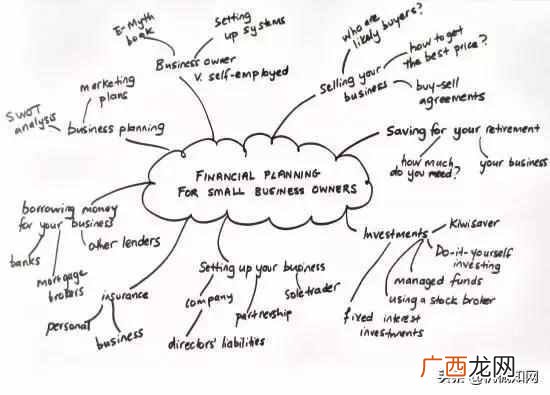 E-Myth
book
Setting
up systems
Business owner
v. self-employed
who are
likely buyers?
how to get
the best price?
Selling your
business
buy-sell
agreements
marketing
plans
SWOT
analysis
business planning
Saving for your retirement
how much
do you need?
your business
FINANCIAL PLANNING
FOR SMALL BUSINESS OWNERS
borrowing money
for your business
banks
mortgage
brokers
other lenders
Investments
Kiwisaver
Do-it-yourself
investing
managed funds
using a stock broker
fixed interest
investments
Setting up your business
company
partnership
sole trader
directors' liabilities
insurance
personal
business
广西龙网